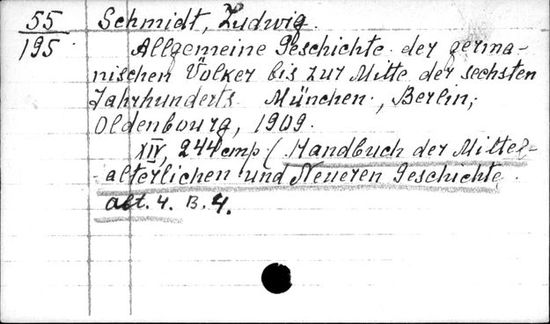 55 Schmidt, Ludwig.
195 Allgemeine Geschichte der germa-
nischen Völker bis zur Mitte der sechsten
Jahrhunderts. München, Berlin,
Oldenbourg, 1909.
XIV, 244 стр. (Handbuch der Mittel-
-alterlichen und Neueren Geschichte.
Abt. 4. B. 4.